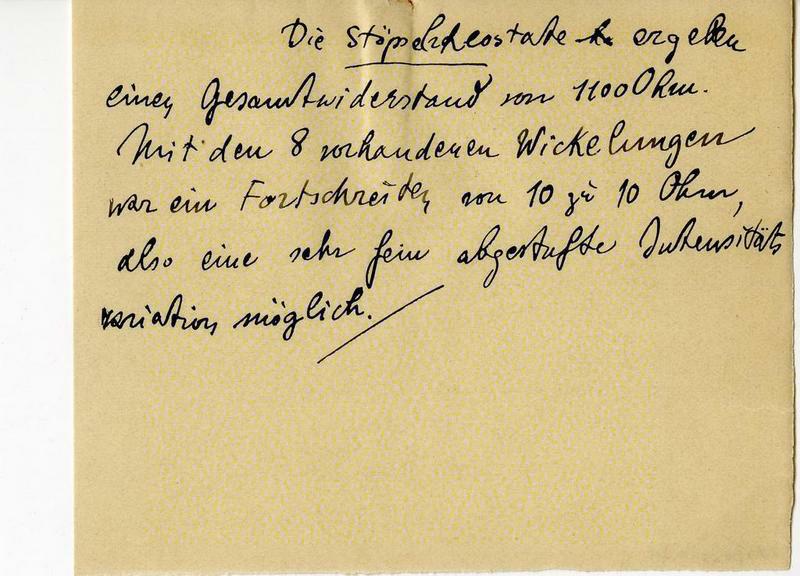 Die Stöpselrheostate ergeben
einen Gesamtwiderstand von 1100 Ohm.
Mit den 8 vorhandenen Wickelungen
war ein Fortschreiten von 10 zu 10 Ohm,
also eine sehr fein abgestufte Intensitäts
variation möglich.